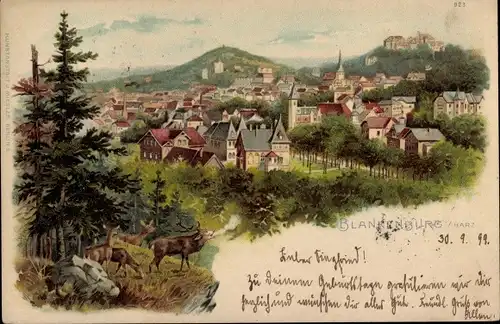 923
BLANKENBURG /HARZ
30. 9. 99.
Lieber Siegfried!
Zu Deinem Geburtstage gratulieren wir Dir
herzlich und wünschen Dir alles Gute. Gruß von
Allen.